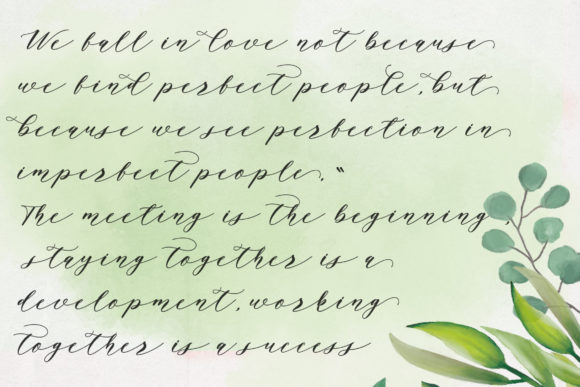 We fall in love not because
we find perfect people, but
because we see perfection in
imperfect people. "
The meeting is the beginning ,
staying together is a
development, working
together is a success